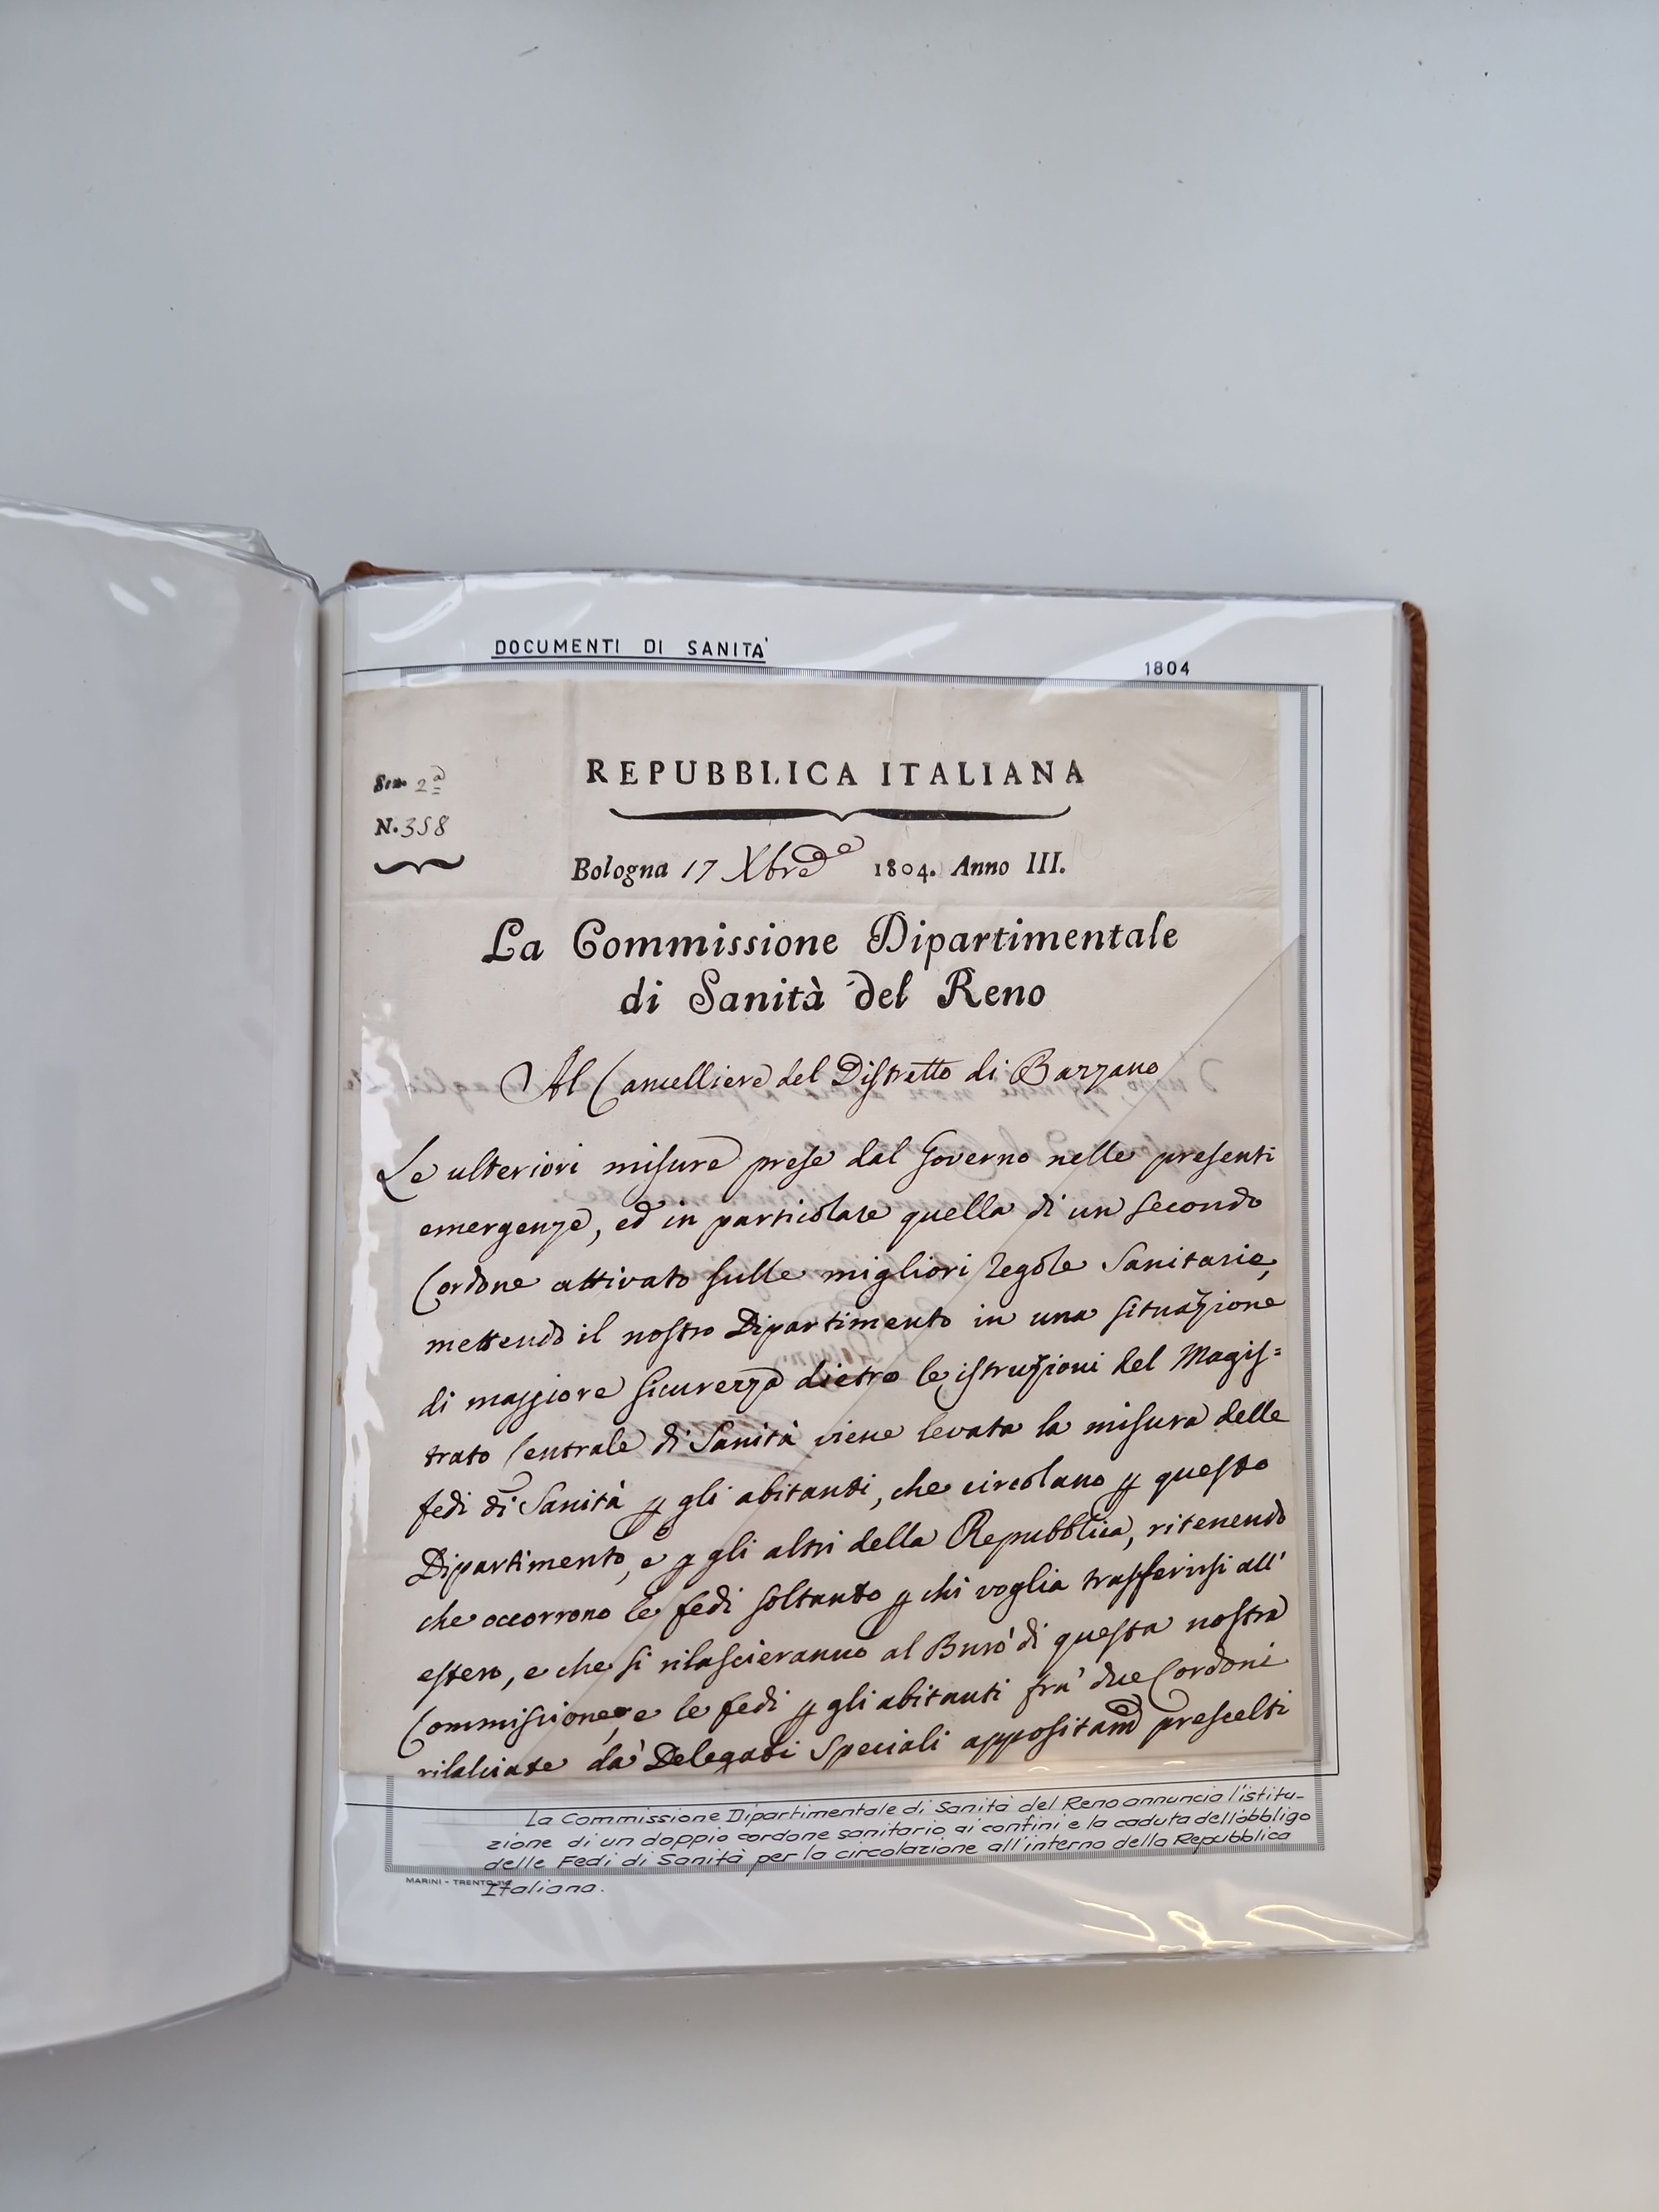 DOCUMENTI DI SANITA'
1804
Sez. 2ª
N. 358
REPUBBLICA ITALIANA
Bologna 17 Xbre 1804. Anno III.
La Commissione Dipartimentale
di Sanità del Reno
Al Cancelliere del Distretto di Bazzano
Le ulteriori misure prese dal Governo nelle presenti
emergenze, ed in particolare quella di un secondo
Cordone attivato sulle migliori regole Sanitarie,
mettendo il nostro Dipartimento in una situazione
di maggiore sicurezza dietro le istruzioni del Magis=
trato Centrale di Sanità viene levata la misura delle
fedi di Sanità p gli abitanti, che circolano p questo
Dipartimento, e p gli altri della Repubblica, ritenendo
che occorrono le fedi soltanto p chi voglia trasferirsi all'
estero, e che si rilascieranno al Burò di questa nostra
Commissione, e le fedi p gli abitanti frà due Cordoni
rilasciate dà Delegati Speciali appositamᵉ prescelti
La Commissione Dipartimentale di Sanità del Reno annuncia l'istitu-
zione di un doppio cordone sanitario ai confini e la caduta dell'obbligo
delle Fedi di Sanità per la circolazione all'interno della Repubblica
Italiana.
MARINI - TRENTO